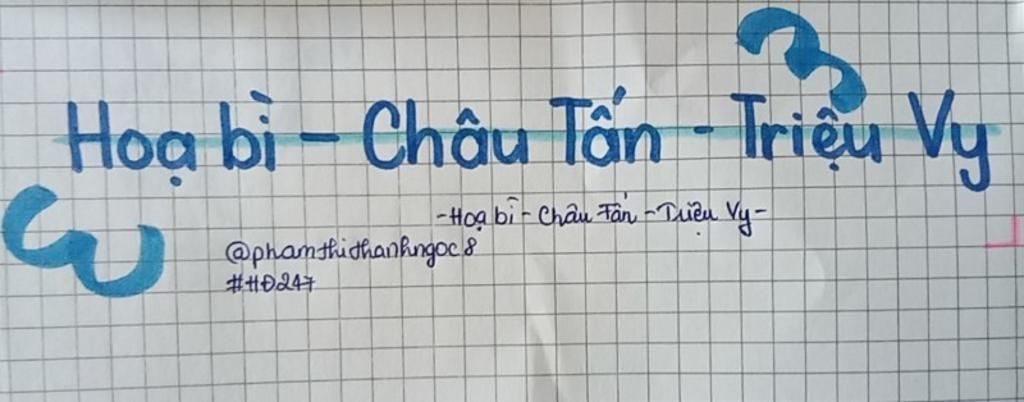 Hoạ bì - Châu Tấn - Triệu Vy
-Hoạ bì - Châu Tấn - Triệu Vy-
@phamthithanhngoc8
#HĐ247